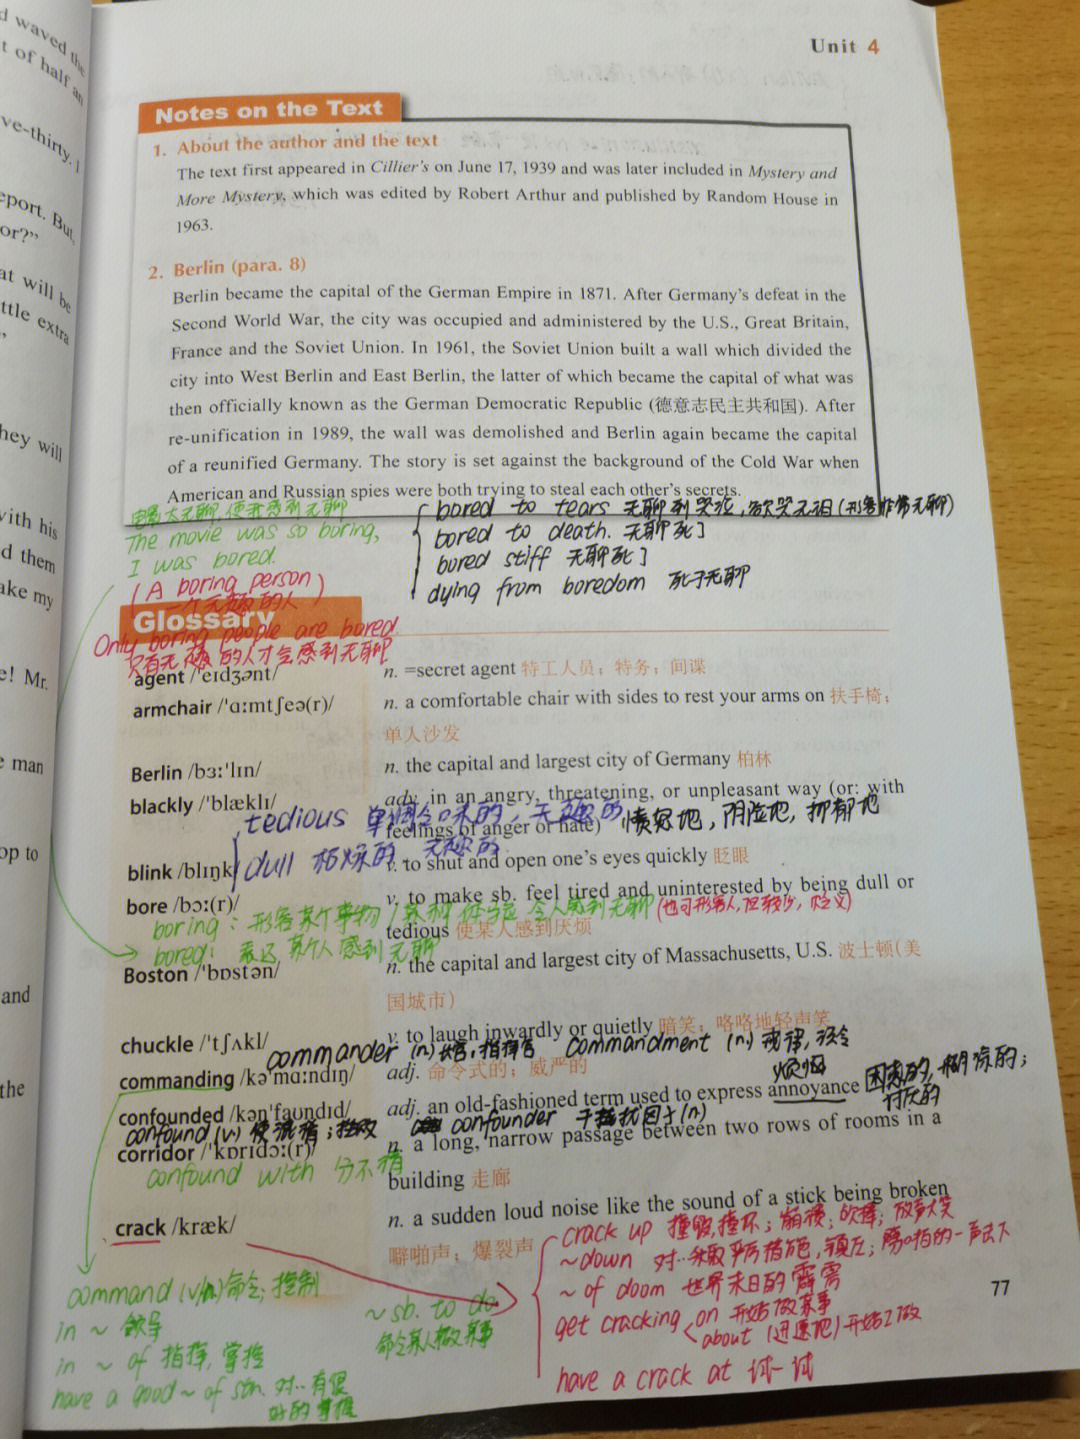 d waved the
t of half an
ve-thirty. I
eport. But,
or?"
at will be
ttle extra
"
hey will
with his
d them
ake my
e! Mr.
e man
op to
and
the
Unit 4
Notes on the Text
1. About the author and the text
The text first appeared in Cillier's on June 17, 1939 and was later included in Mystery and
More Mystery, which was edited by Robert Arthur and published by Random House in
1963.
2. Berlin (para. 8)
Berlin became the capital of the German Empire in 1871. After Germany's defeat in the
Second World War, the city was occupied and administered by the U.S., Great Britain,
France and the Soviet Union. In 1961, the Soviet Union built a wall which divided the
city into West Berlin and East Berlin, the latter of which became the capital of what was
then officially known as the German Democratic Republic (德意志民主共和国). After
re-unification in 1989, the wall was demolished and Berlin again became the capital
of a reunified Germany. The story is set against the background of the Cold War when
American and Russian spies were both trying to steal each other's secrets.
电影太无聊,使我感到无聊
The movie was so boring,
I was bored.
(A boring person
一个无趣的人)
Only boring people are bored.
只有无趣的人才会感到无聊
bored to tears 无聊到哭泣,欲哭无泪(形容非常无聊)
bored to death. 无聊死了
bored stiff 无聊死了
dying from boredom 死于无聊
Glossary
agent /'eɪdʒənt/ n. =secret agent 特工人员;特务;间谍
armchair /'ɑːmtʃeə(r)/ n. a comfortable chair with sides to rest your arms on 扶手椅;
单人沙发
Berlin /bɜː'lɪn/ n. the capital and largest city of Germany 柏林
blackly /'blæklɪ/ adv. in an angry, threatening, or unpleasant way (or: with
feelings of anger or hate) 愤怒地,阴险地,抑郁地
tedious 单调乏味的,无趣的
dull 枯燥的 无趣的
blink /blɪŋk/ v. to shut and open one's eyes quickly 眨眼
bore /bɔː(r)/ v. to make sb. feel tired and uninterested by being dull or
tedious 使某人感到厌烦
boring: 形容某个事物/ 令人感到无聊(也可形容人,但较少,贬义)
bored: 表达某个人感到无聊
Boston /'bɒstən/ n. the capital and largest city of Massachusetts, U.S. 波士顿(美
国城市)
chuckle /'tʃʌkl/ v. to laugh inwardly or quietly 暗笑;咯咯地轻声笑
commander (n.) 长官,指挥官 commandment (n.) 戒律,法令
commanding /kə'mɑːndɪŋ/ adj. 命令式的;威严的
烦恼
confounded /kən'faʊndɪd/ adj. an old-fashioned term used to express annoyance 困惑的,糊涂的;
讨厌的
confound (v.) 使混淆; confounder 干扰因子(n.)
corridor /'kɒrɪdɔː(r)/ n. a long, narrow passage between two rows of rooms in a
building 走廊
confound with 分不清
crack /kræk/ n. a sudden loud noise like the sound of a stick being broken
噼啪声;爆裂声
crack up 撞毁,撞坏;崩溃;吹捧;放声大笑
~down 对…采取严厉措施,镇压;
~ of doom 世界末日的霹雳
get cracking on 开始做某事
about (迅速地)开始工做
have a crack at 试一试
command (v/n.)命令;控制
in ~ 领导
in ~ of 指挥,掌控
have a good ~ of sth. 对…有很
好的掌握
~ sb. to do
命令某人做某事
77